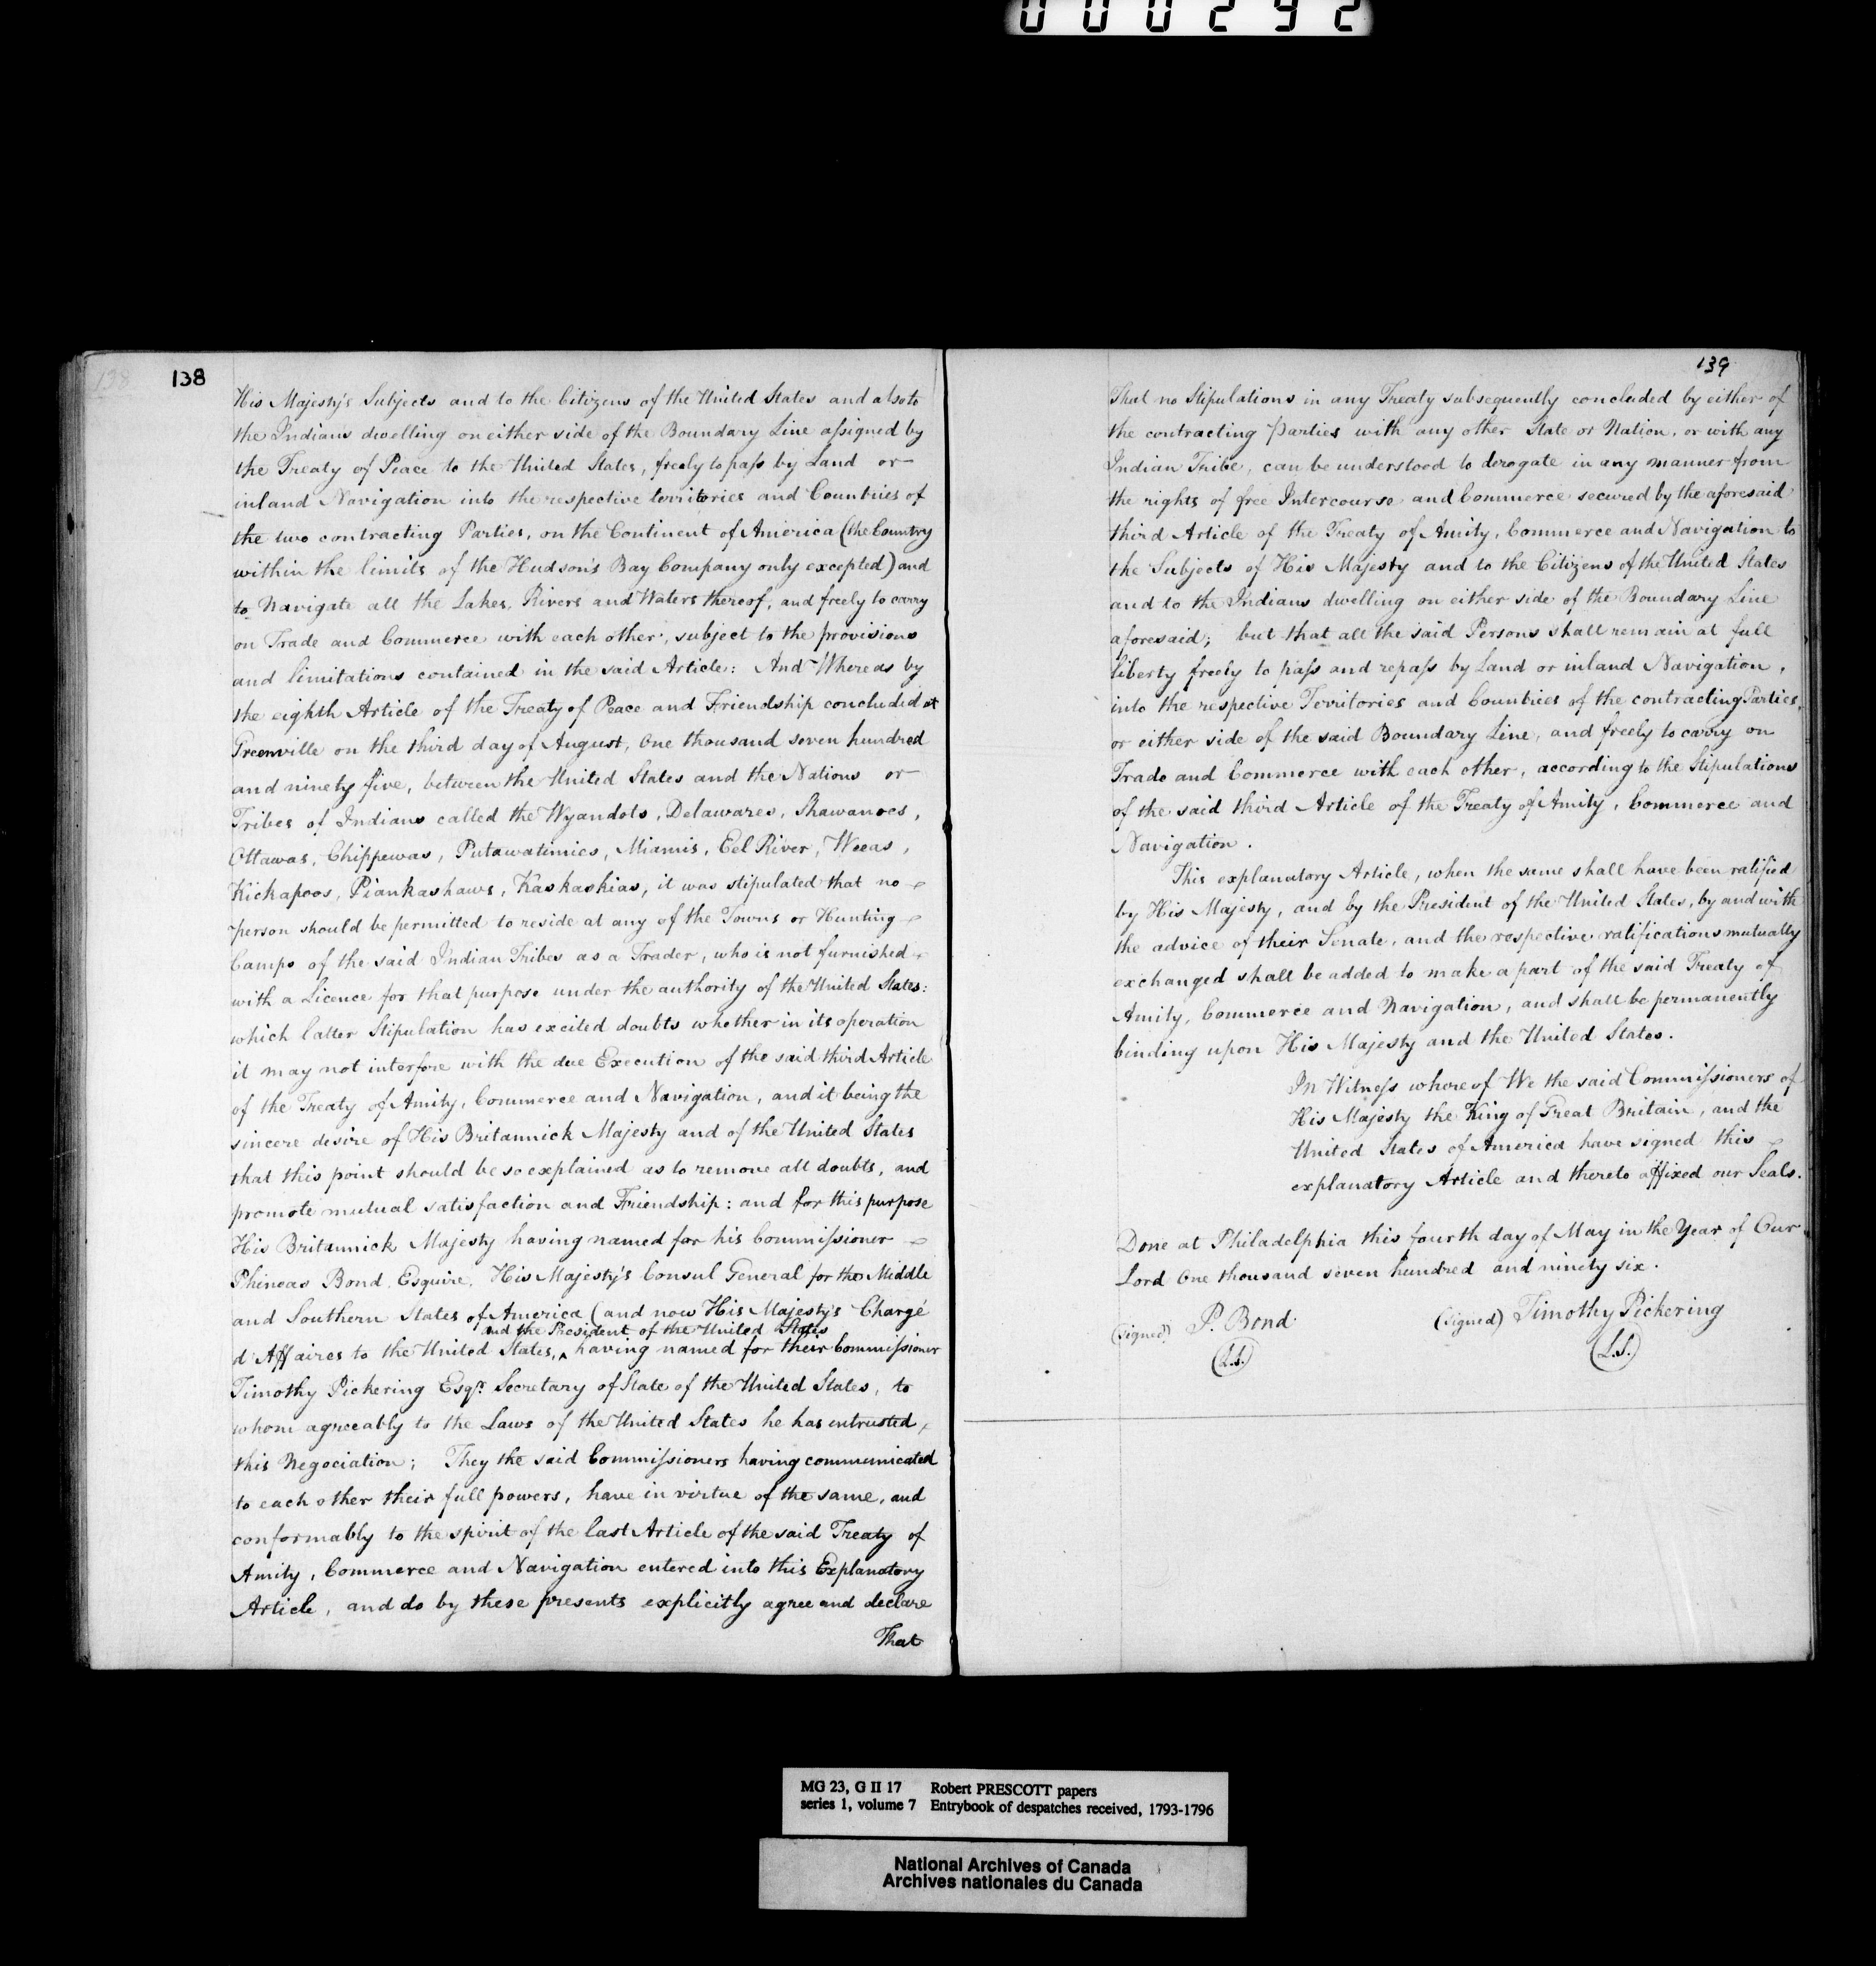 000292
138
His Majesty's Subjects and to the Citizens of the United States and also to
the Indians dwelling on either side of the Boundary Line assigned by
the Treaty of Peace to the United States, freely to pass by Land or
inland Navigation into the respective territories and Countries of
the two contracting Parties, on the Continent of America (the Country
within the limits of the Hudson's Bay Company only excepted) and
to Navigate all the Lakes, Rivers and Waters thereof, and freely to carry
on Trade and Commerce with each other, subject to the provisions
and limitations contained in the said Article: And Whereas by
the eighth Article of the Treaty of Peace and Friendship concluded at
Greenville on the third day of August, One thousand seven hundred
and ninety five, between the United States and the Nations or
Tribes of Indians called the Wyandots, Delawares, Shawanoes,
Ottawas, Chippewas, Putawatimies, Miamis, Eel River, Weeas,
Kickapoos, Piankashaws, Kaskaskias, it was stipulated that no
person should be permitted to reside at any of the Towns or Hunting
Camps of the said Indian Tribes as a Trader, who is not furnished
with a Licence for that purpose under the authority of the United States:
which latter Stipulation has excited doubts whether in its operation
it may not interfere with the due Execution of the said third Article
of the Treaty of Amity, Commerce and Navigation, and it being the
sincere desire of His Britannick Majesty and of the United States
that this point should be so explained as to remove all doubts, and
promote mutual satisfaction and Friendship: and for this purpose
His Britannick Majesty having named for his Commissioner
Phineas Bond Esquire, His Majesty's Consul General for the Middle
and Southern States of America (and now His Majesty's Chargé
and the President of the United States
d'Affaires to the United States, ^ having named for their Commissioner
Timothy Pickering Esqr. Secretary of State of the United States, to
whom agreeably to the Laws of the United States he has intrusted
this Negociation; They the said Commissioners having communicated
to each other their full powers, have in virtue of the same, and
conformably to the spirit of the last Article of the said Treaty of
Amity, Commerce and Navigation entered into this Explanatory
Article, and do by these presents explicitly agree and declare
That
139
That no Stipulations in any Treaty subsequently concluded by either of
the contracting Parties with any other State or Nation, or with any
Indian Tribe, can be understood to derogate in any manner from
the rights of free Intercourse and Commerce secured by the aforesaid
third Article of the Treaty of Amity, Commerce and Navigation to
the Subjects of His Majesty and to the Citizens of the United States
and to the Indians dwelling on either side of the Boundary Line
aforesaid; but that all the said Persons shall remain at full
liberty freely to pass and repass by Land or inland Navigation,
into the respective Territories and Countries of the contracting Parties,
or either side of the said Boundary Line, and freely to carry on
Trade and Commerce with each other, according to the Stipulations
of the said third Article of the Treaty of Amity, Commerce and
Navigation.
This explanatory Article, when the same shall have been ratified
by His Majesty, and by the President of the United States, by and with
the advice of their Senate, and the respective ratifications mutually
exchanged shall be added to make a part of the said Treaty of
Amity, Commerce and Navigation, and shall be permanently
binding upon His Majesty and the United States.
In Witness whereof We the said Commissioners of
His Majesty the King of Great Britain, and the
United States of America have signed this
explanatory Article and thereto affixed our Seals.
Done at Philadelphia this fourth day of May in the Year of Our
Lord One thousand seven hundred and ninety six.
(signed) P. Bond (signed) Timothy Pickering
(L.S.) (L.S.)
MG 23, G II 17 Robert PRESCOTT papers
series 1, volume 7 Entrybook of despatches received, 1793-1796
National Archives of Canada
Archives nationales du Canada